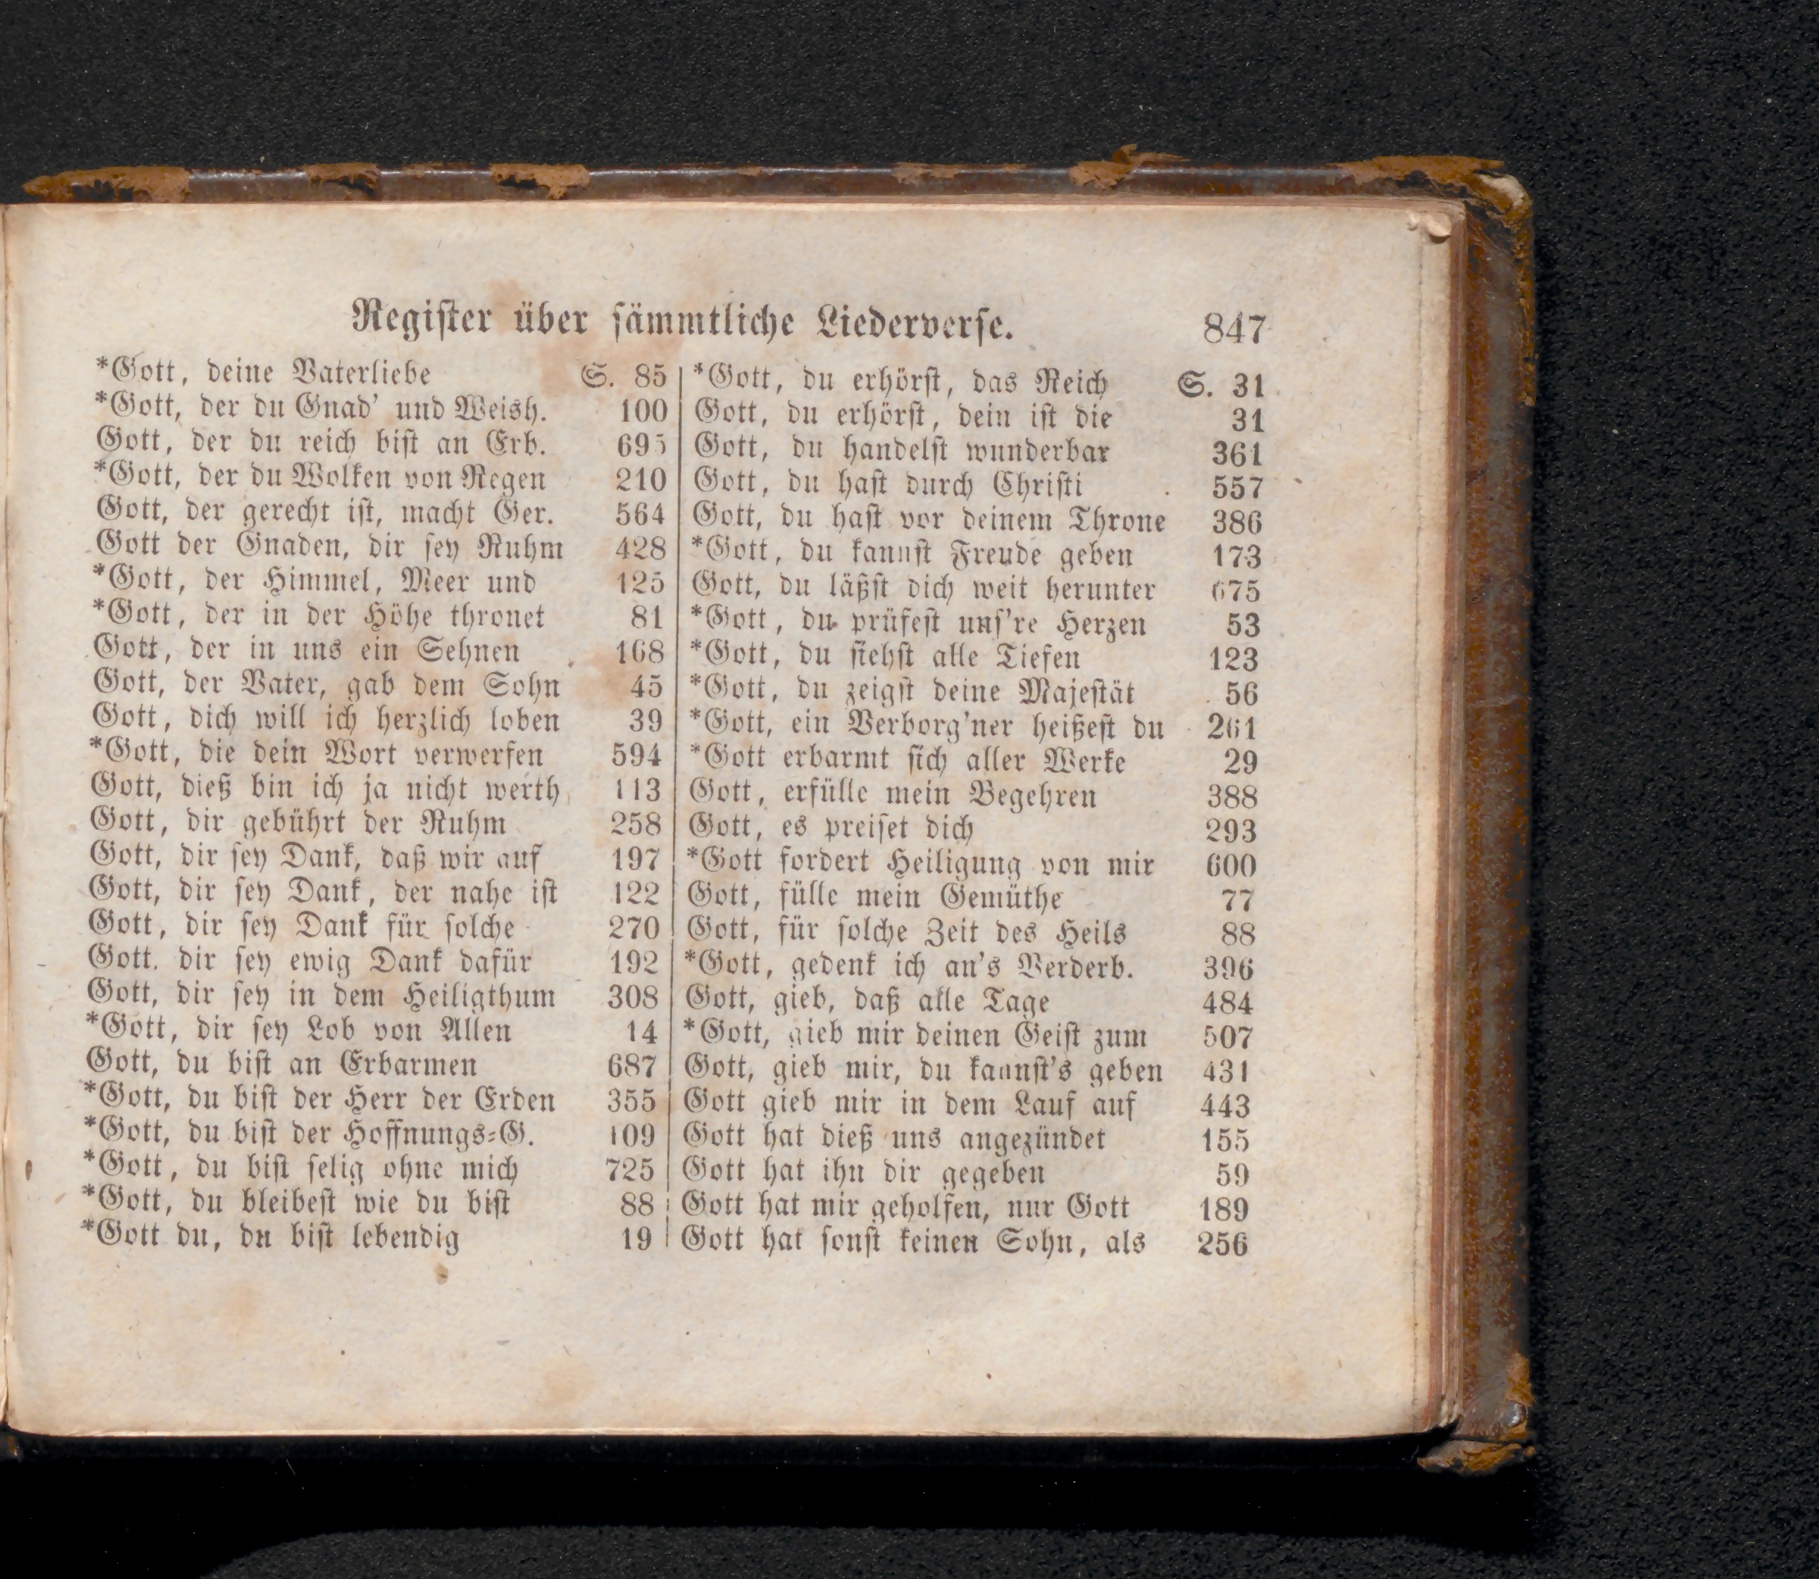 Register über sämmtliche Liederverse. 847
*Gott, deine Vaterliebe S. 85
*Gott, der du Gnad' und Weish. 100
Gott, der du reich bist an Erb. 695
*Gott, der du Wolken von Regen 210
Gott, der gerecht ist, macht Ger. 564
Gott der Gnaden, dir sey Ruhm 428
*Gott, der Himmel, Meer und 125
*Gott, der in der Höhe thronet 81
Gott, der in uns ein Sehnen 168
Gott, der Vater, gab dem Sohn 45
Gott, dich will ich herzlich loben 39
*Gott, die dein Wort verwerfen 594
Gott, dieß bin ich ja nicht werth 113
Gott, dir gebührt der Ruhm 258
Gott, dir sey Dank, daß wir auf 197
Gott, dir sey Dank, der nahe ist 122
Gott, dir sey Dank für solche 270
Gott. dir sey ewig Dank dafür 192
Gott, dir sey in dem Heiligthum 308
*Gott, dir sey Lob von Allen 14
Gott, du bist an Erbarmen 687
*Gott, du bist der Herr der Erden 355
*Gott, du bist der Hoffnungs-G. 109
*Gott, du bist selig ohne mich 725
*Gott, du bleibest wie du bist 88
*Gott du, du bist lebendig 19
*Gott, du erhörst, das Reich S. 31
Gott, du erhörst, dein ist die 31
Gott, du handelst wunderbar 361
Gott, du hast durch Christi 557
Gott, du hast vor deinem Throne 386
*Gott, du kannst Freude geben 173
Gott, du läßst dich weit herunter 675
*Gott, du prüfest uns're Herzen 53
*Gott, du siehst alle Tiefen 123
*Gott, du zeigst deine Majestät 56
*Gott, ein Verborg'ner heißest du 261
*Gott erbarmt sich aller Werke 29
Gott, erfülle mein Begehren 388
Gott, es preiset dich 293
*Gott fordert Heiligung von mir 600
Gott, fülle mein Gemüthe 77
Gott, für solche Zeit des Heils 88
*Gott, gedenk ich an's Verderb. 396
Gott, gieb, daß alle Tage 484
*Gott, gieb mir deinen Geist zum 507
Gott, gieb mir, du kannst's geben 431
Gott gieb mir in dem Lauf auf 443
Gott hat dieß uns angezündet 155
Gott hat ihn dir gegeben 59
Gott hat mir geholfen, nur Gott 189
Gott hat sonst keinen Sohn, als 256